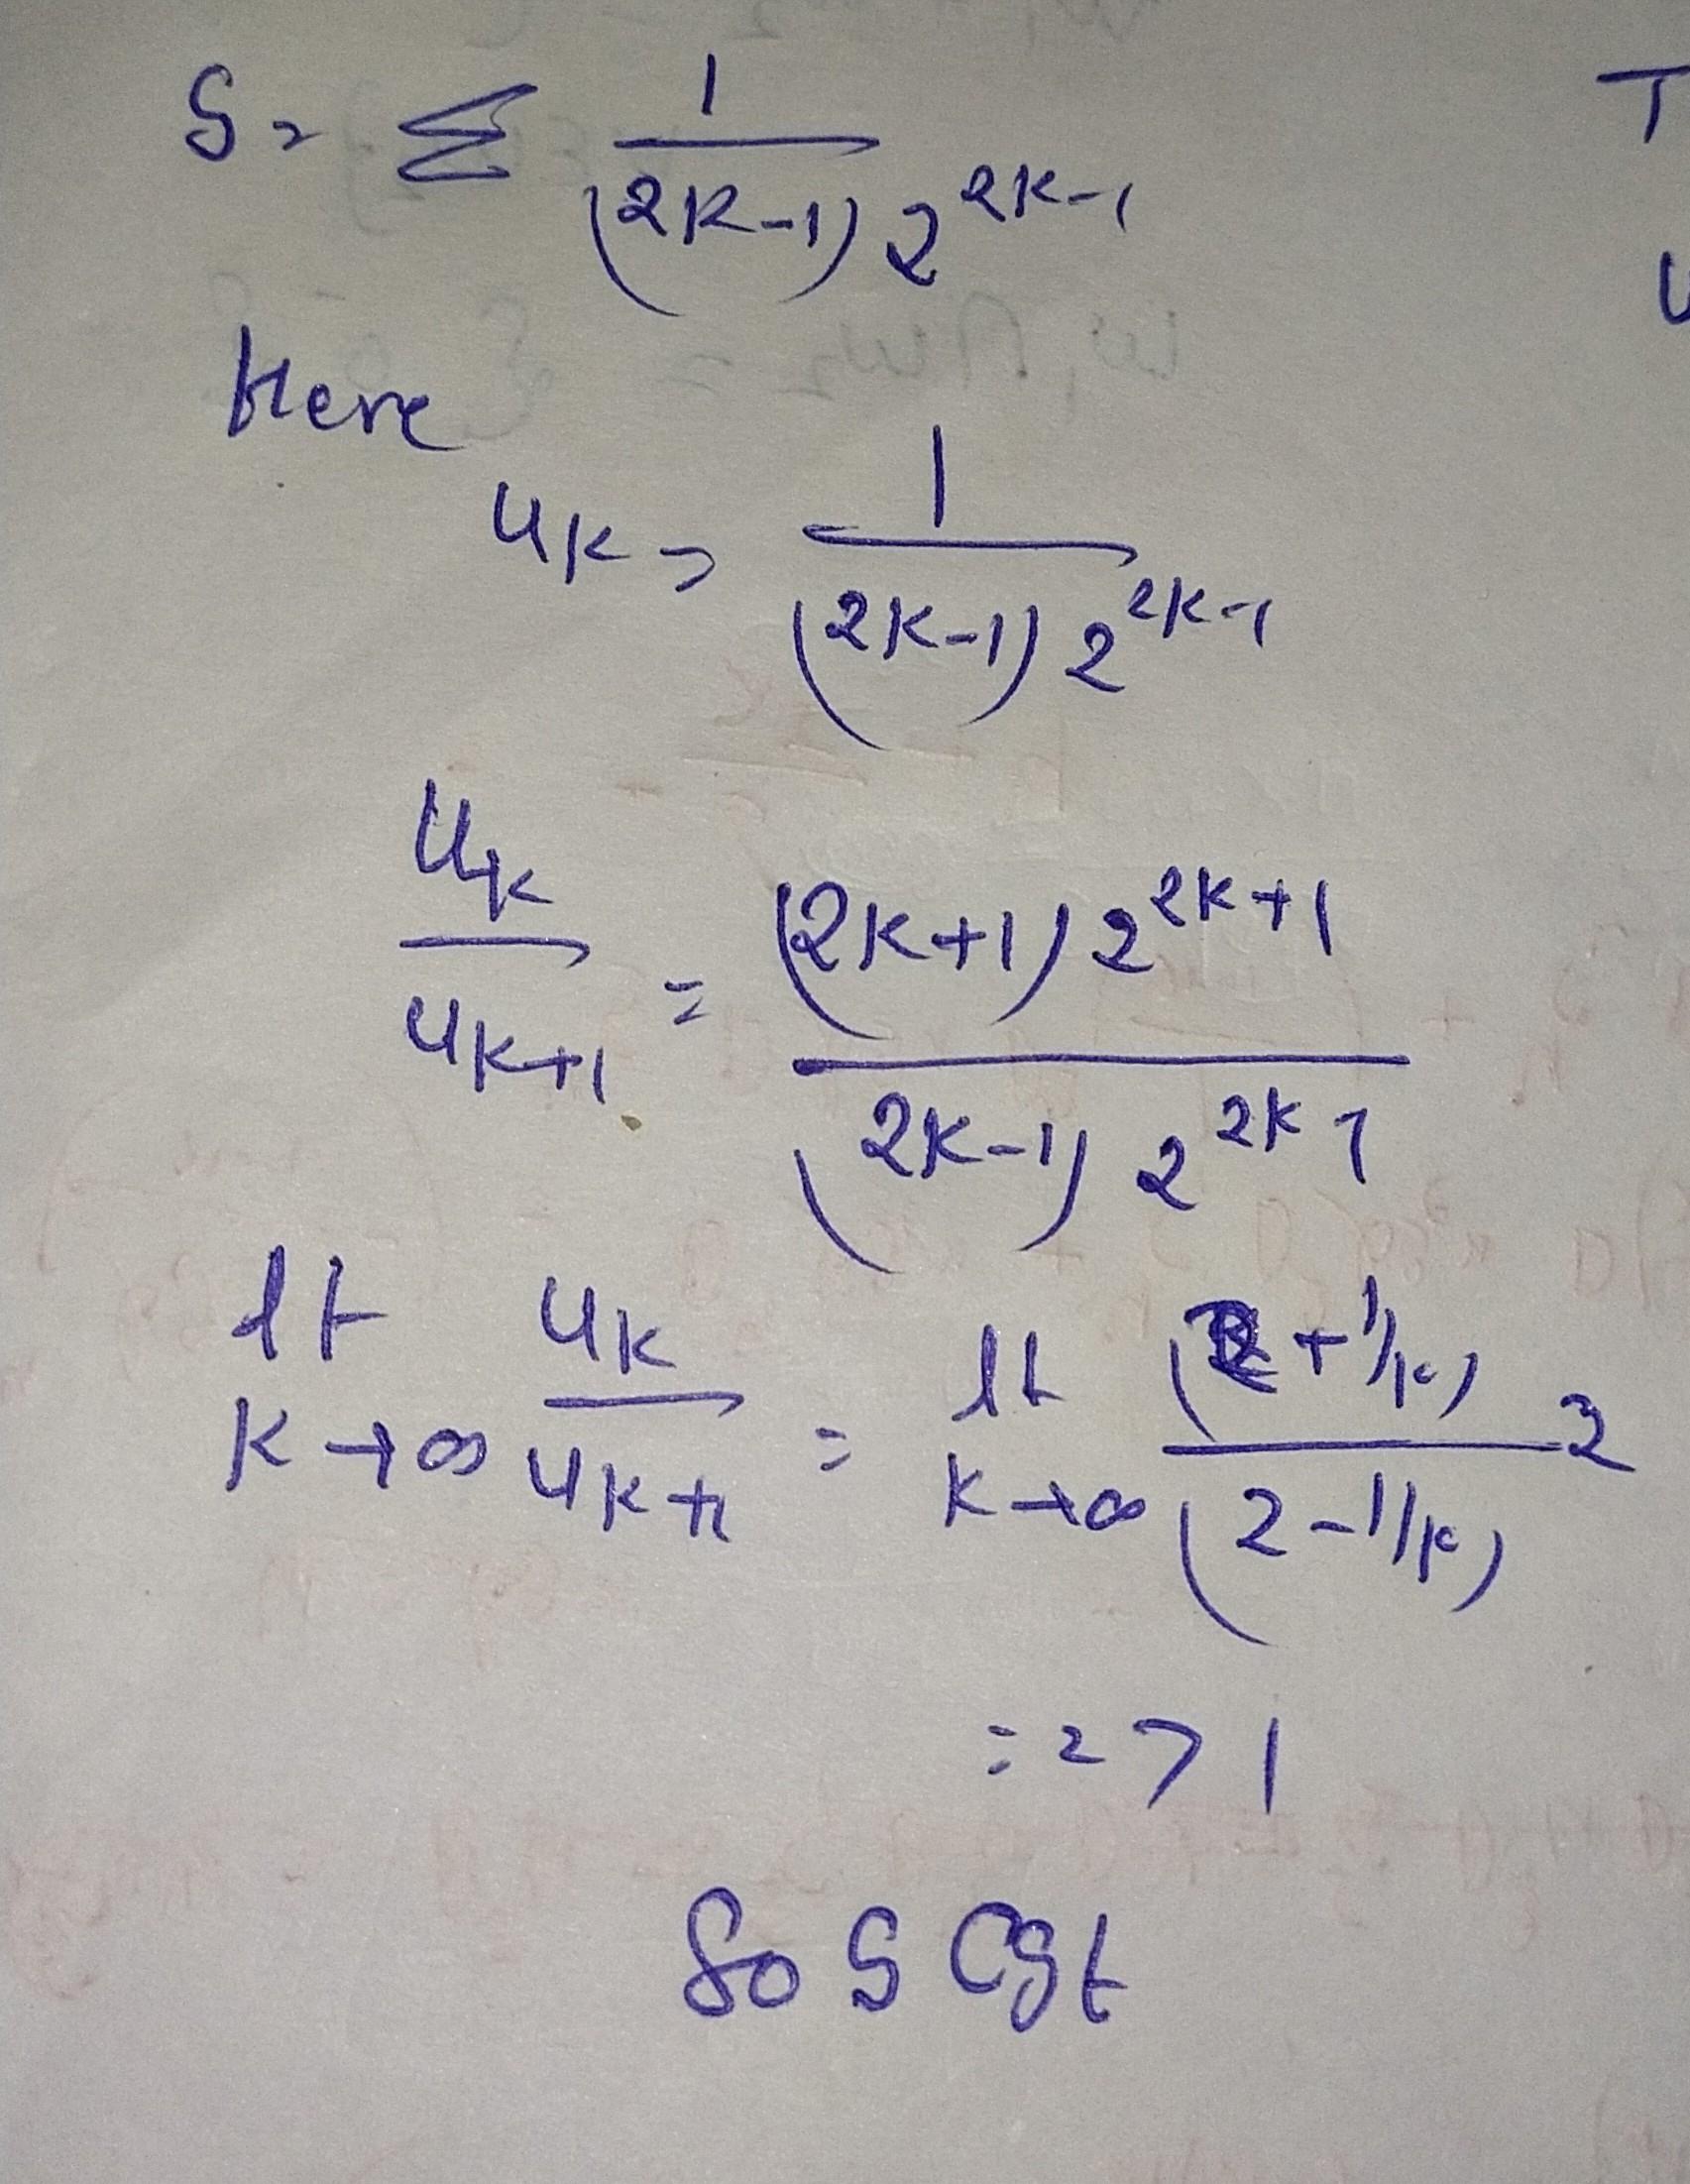 S = Σ 1 / (2k-1) 2^{2k-1}
Here
u_k = 1 / (2k-1) 2^{2k-1}
u_k / u_{k+1} = (2k+1) 2^{2k+1} / (2k-1) 2^{2k-1}
lt k→∞ u_k / u_{k+1} = lt k→∞ (2 + 1/k) / (2 - 1/k) 2
= 2 > 1
So S Cgt
T